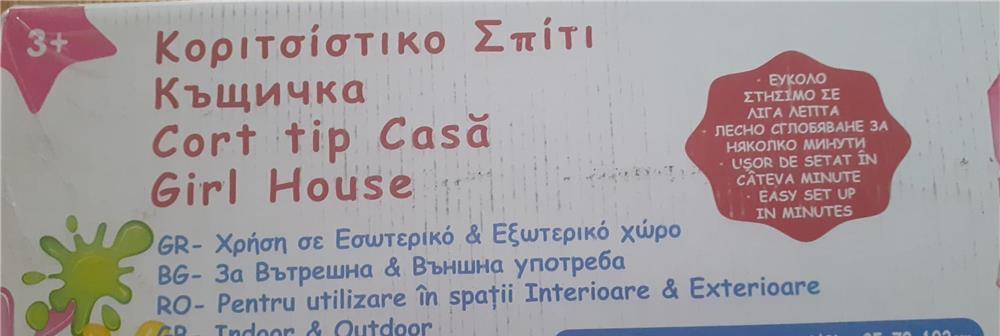 3+
Κοριτσίστικο Σπίτι
Къщичка
Cort tip Casă
Girl House
· ΕΥΚΟΛΟ
ΣΤΗΣΙΜΟ ΣΕ
ΛΙΓΑ ΛΕΠΤΑ
· ЛЕСНО СГЛОБЯВАНЕ ЗА
НЯКОЛКО МИНУТИ
· UȘOR DE SETAT ÎN
CÂTEVA MINUTE
· EASY SET UP
IN MINUTES
GR- Χρήση σε Εσωτερικό & Εξωτερικό χώρο
BG- За Вътрешна & Външна употреба
RO- Pentru utilizare în spații Interioare & Exterioare
Indoor & Outdoor